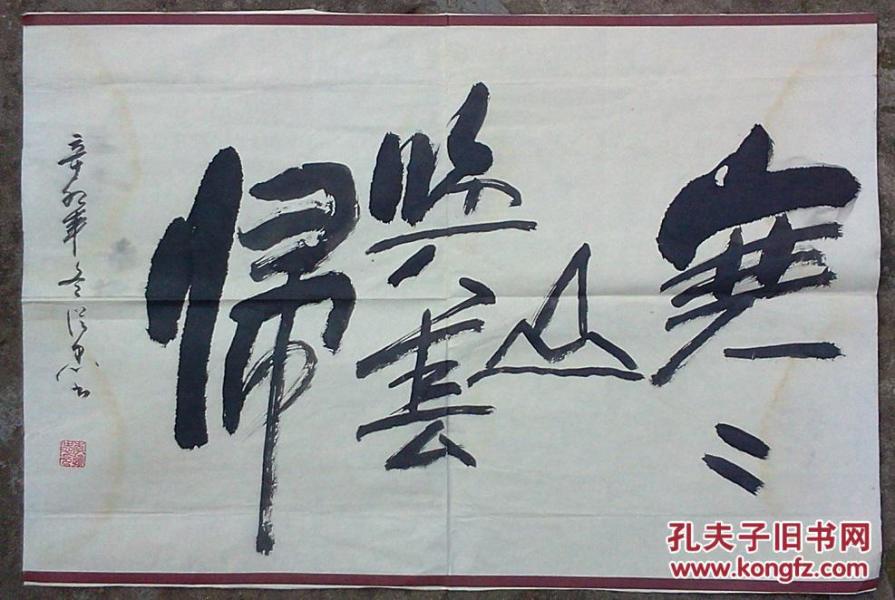 寒山與雲歸
辛卯年冬
孔夫子旧书网
www.kongfz.com